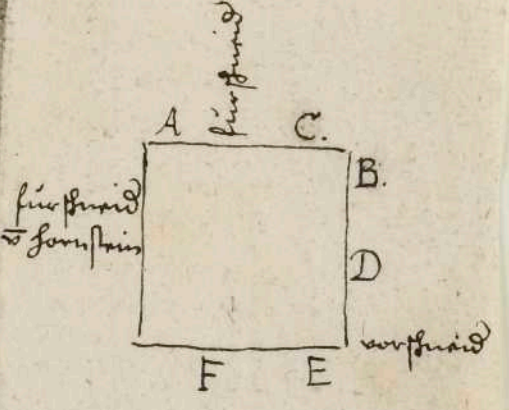 fürschneid
A C.
B.
fürschneid
v̄ hornstein
D
vorschneid
F E